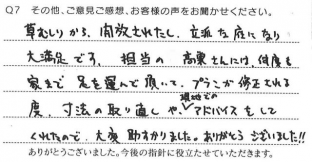 Q7 その他、ご意見ご感想、お客様の声をお聞かせください。
草むしりから、開放されたし、立派な庭になり
大満足です。担当の 高栗さんには、何度も
家まで 足を運んで頂いて、プランが修正される
度、寸法の取り直しや、現地でのアドバイスをして
くれたので、大変 助かりました。ありがとうございました!!
ありがとうございました。今後の指針に役立たせていただきます。